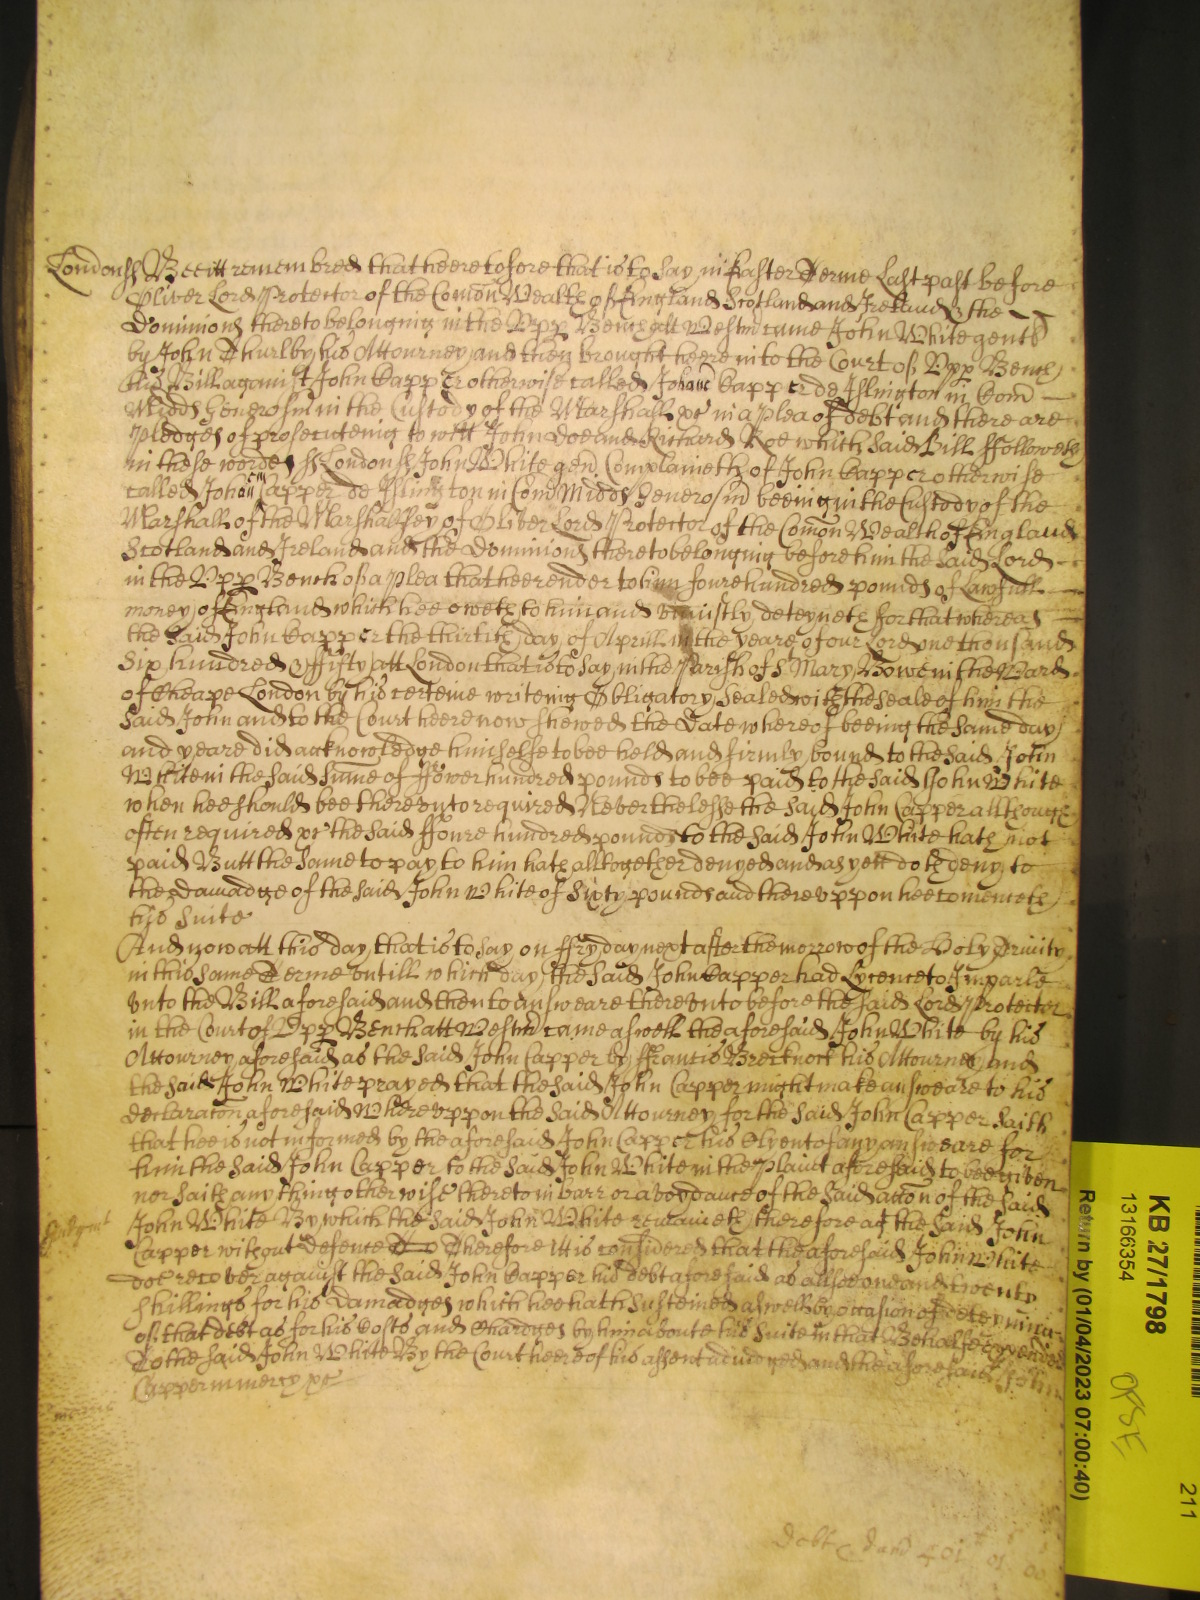 London ss Bee itt remembred that heeretofore that is to say in Easter Terme Last past before
Oliver Lord Protector of the Comon Wealth of England Scotland and Ireland & the
Dominions thereto belonging in the Vpp Bench att Westm came John White gent
by John Thurlby his Attourney and then brought heere into the Court of Vpp Bench
his Bill against John Capper otherwise called Johan Capper de Islington in Com
Midds Generosm in the Custody of the Marshall &c in a plea of debt and there are
pledges of prosecuteing to witt John Doe and Richard Roe which said Bill ffolloweth
in these wordes ss London ss John White gen Complaineth of John Capper otherwise
called Johan Capper de Islington in Com Midds Generosm beeing in the Custody of the
Marshall of the Marshalsey of Oliver Lord Protector of the Comon Wealth of England
Scotland and Ireland and the Dominions thereto belonging before him the said Lord
in the Vpp Bench of a plea that hee render to him foure hundred pounds of Lawfull
money of England which hee oweth to him and vniustly deteyneth for that whereas
the said John Capper the thirtith day of Aprill in the yeare of our Lord one thousand
Six hundred & ffifty att London that is to say in the Parish of S Mary Bowe in the Ward
of Cheape London by his certeine writeing Obligatory Sealed with the seale of him the
said John and to the Court heere now shewed the Date whereof beeing the same day
and yeare did acknowledge himselfe to bee held and firmly bound to the said John
White in the said summe of ffower hundred pounds to bee paid to the said John White
when hee should bee therevnto required Neverthelesse the said John Capper although
often required &c the said ffoure hundred pounds to the said John White hath not
paid Butt the same to pay to him hath altogether denyed and as yett doth deny to
the damadge of the said John White of Sixty pounds and therevppon hee
his Suite
And now att this day that is to say on ffryday next after the morrow of the Holy Trinity
in this same Terme vntill which day the said John Capper had Lycence to Imparle
vnto the Bill aforesaid and then to answeare therevnto before the said Lord Protector
in the Court of Vpp Bench att Westm came aswell the aforesaid John White by his
Attourney aforesaid as the said John Capper by ffrancis Brecknock his Attourney and
the said John White prayed that the said John Capper might make answeare to his
declaraton aforesaid Wherevppon the said Attourney for the said John Capper saith
that hee is not informed by the aforesaid John Capper his Clyent of any answeare for
him the said John Capper to the said John White in the plaint aforesaid to bee given
nor saith any thing otherwise thereto in barr or avoydance of the said acton of the said
John White By which the said John White remaineth therefore agt the said John
Capper without defence Therefore itt is considered that the aforesaid John White
doe recover against the said John Capper his debt aforesaid as alsoe one and twenty
shillings for his Damadges which hee hath susteined aswell by occasion of deteyninge
of that debt as for his Costs and Chardges by him aboute his suite in that Behalfe expended
To the said John White By the Court heere of his assent adiudged and the aforesaid John
Capper in mercy &c
Judgmt
Debt & dam 401 01 00
KB 27/1798
13166354
Return by (01/04/2023 07:00:40)
211